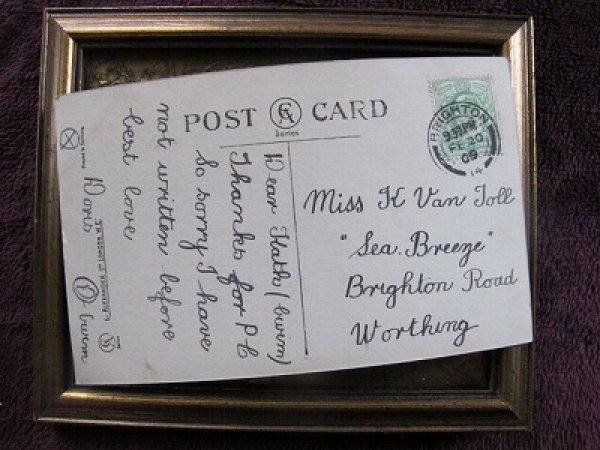 POST CARD
Series
BRIGHTON
9.30PM
FE 20
09
14
Miss K Van Toll
"Sea Breeze"
Brighton Road
Worthing
Dear Kath (bwvm)
Thanks for P.C
So sorry I have
not written before
best love
Doris
bwvm